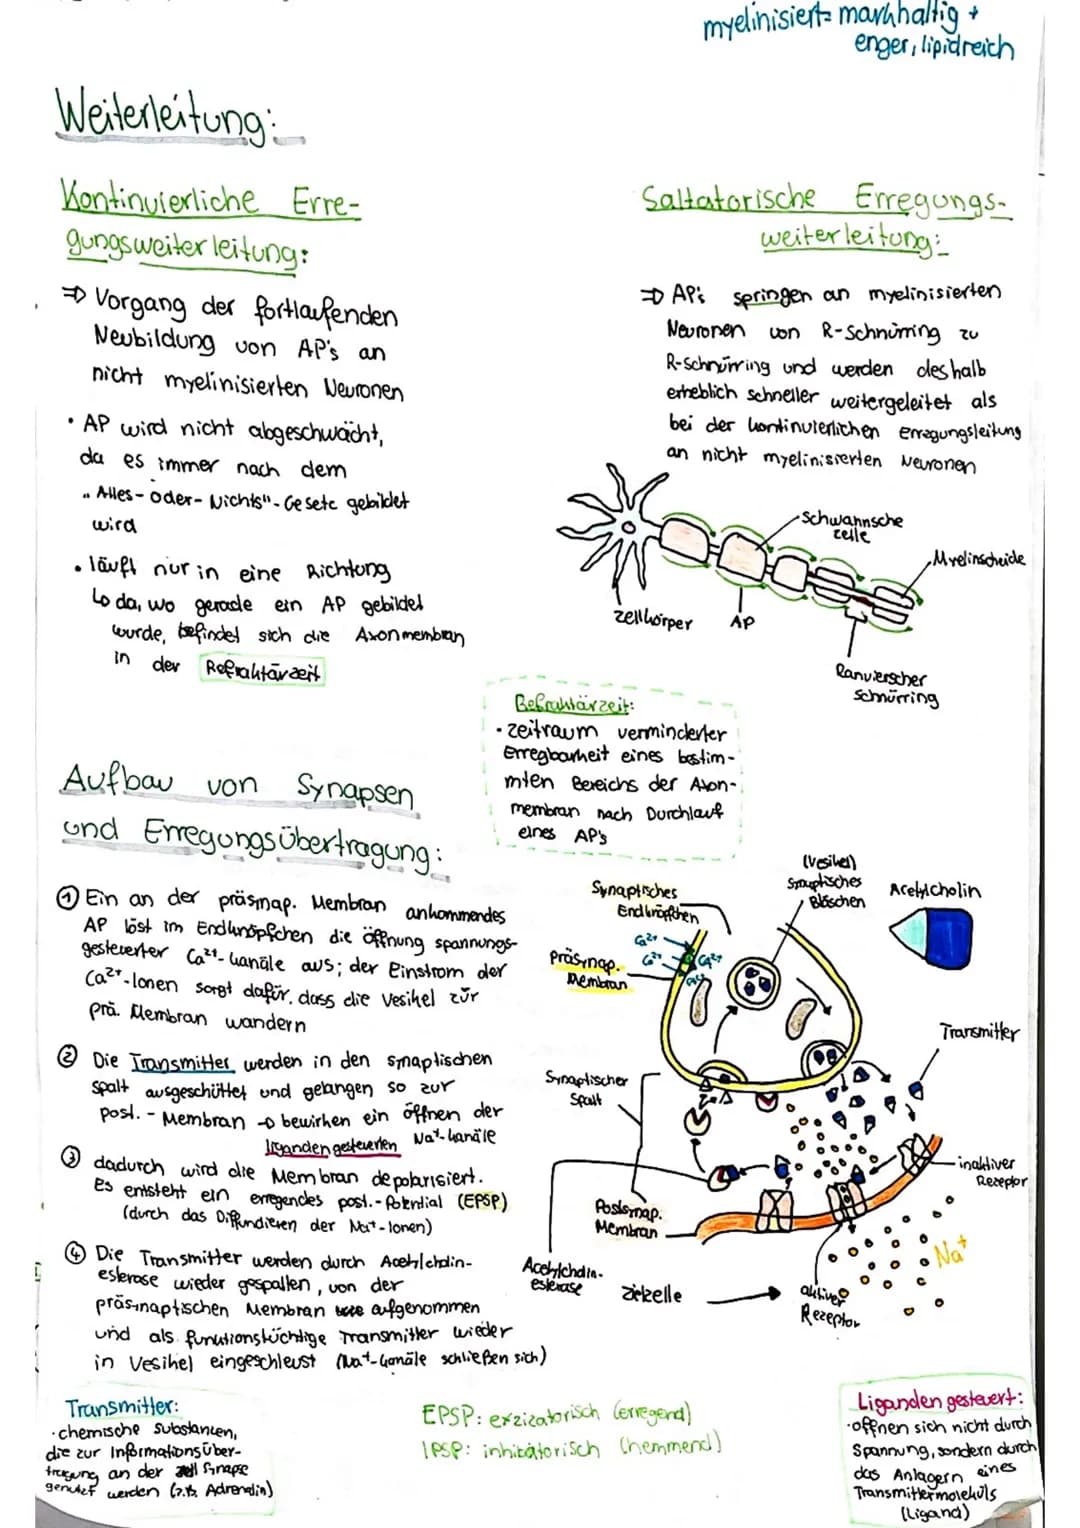 myelinisiert= markhaltig +
enger, lipidreich
Weiterleitung:
Kontinuierliche Erre-
gungsweiterleitung:
⇒ Vorgang der fortlaufenden
Neubildung von AP's an
nicht myelinisierten Neuronen
• AP wird nicht abgeschwächt,
da es immer nach dem
„Alles-oder-Nichts"-Gesetz gebildet
wird
• läuft nur in eine Richtung
↳ da, wo gerade ein AP gebildet
wurde, befindet sich die Axonmembran
in der Refraktärzeit
Saltatorische Erregungs-
weiterleitung:
⇒ AP's springen an myelinisierten
Neuronen von R-Schnürring zu
R-Schnürring und werden deshalb
erheblich schneller weitergeleitet als
bei der kontinuierlichen Erregungsleitung
an nicht myelinisierten Neuronen
Schwannsche
Zelle
Myelinscheide
Zellkörper
AP
Ranvierscher
Schnürring
Refraktärzeit:
• Zeitraum verminderter
Erregbarkeit eines bestim-
mten Bereichs der Axon-
membran nach Durchlauf
eines AP's
Aufbau von Synapsen
und Erregungsübertragung:
① Ein an der präsynap. Membran ankommendes
AP löst im Endknöpfchen die Öffnung spannungs-
gesteuerter Ca²⁺-Kanäle aus; der Einstrom der
Ca²⁺-Ionen sorgt dafür, dass die Vesikel zur
prä. Membran wandern
② Die Transmitter werden in den synaptischen
Spalt ausgeschüttet und gelangen so zur
post.-Membran → bewirken ein öffnen der
liganden gesteuerten Na⁺-Kanäle
③ dadurch wird die Membran depolarisiert.
Es entsteht ein erregendes post.-Potential (EPSP)
(durch das Diffundieren der Na⁺-Ionen)
④ Die Transmitter werden durch Acetylcholin-
esterase wieder gespalten, von der
präsynaptischen Membran aufgenommen
und als funktionstüchtige Transmitter wieder
in Vesikel eingeschleust (Na⁺-Kanäle schließen sich)
Synaptisches
Endknöpfchen
(Vesikel)
Synaptisches
Bläschen
Acetylcholin
Ca²⁺
Ca²⁺
Ca²⁺
Ca²⁺
Präsynap.
Membran
Transmitter
Synaptischer
Spalt
inaktiver
Rezeptor
Postsynap.
Membran
Na⁺
Acetylcholin-
esterase
Zielzelle
aktiver
Rezeptor
Transmitter:
• chemische Substanzen,
die zur Informationsüber-
tragung an der Synapse
genutzt werden (z.B. Adrenalin)
EPSP: exzizatorisch (erregend)
IPSP: inhibatorisch (hemmend)
Liganden gesteuert:
• öffnen sich nicht durch
Spannung, sondern durch
das Anlagern eines
Transmittermoleküls
(Ligand)